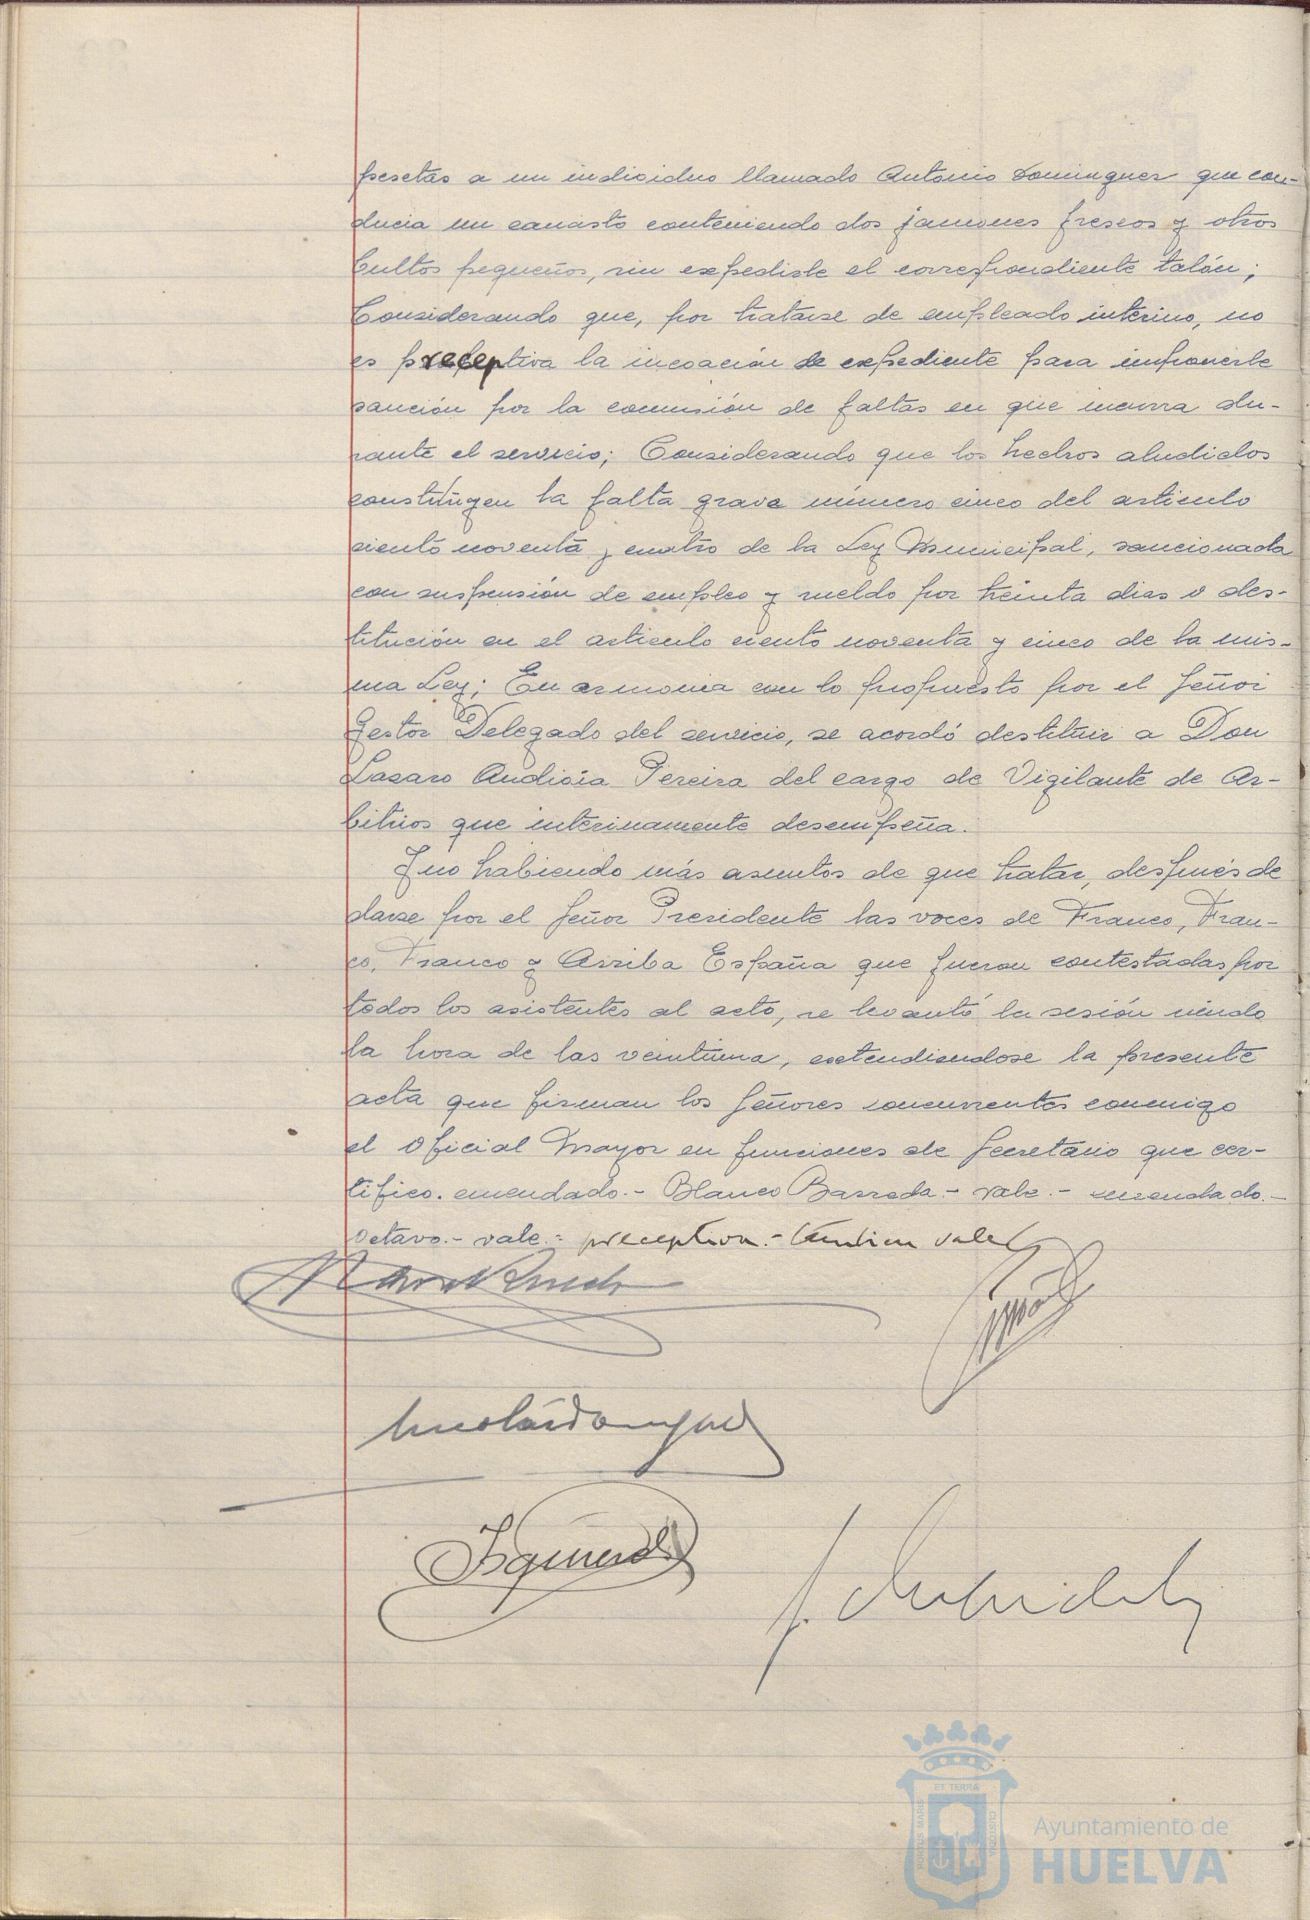 pesetas a un individuo llamado Antonio Dominguez que con-
ducia un canasto conteniendo dos jamones frescos y otros
bultos pequeños, sin expedirle el correspondiente talón;
Considerando que, por tratarse de empleado interino, no
es preceptiva la incoación de expediente para imponerle
sanción por la comisión de faltas en que incurra du-
rante el servicio; Considerando que los hechos aludidos
constituyen la falta grave número cinco del articulo
ciento noventa y cuatro de la Ley Municipal, sancionada
con suspensión de empleo y sueldo por treinta dias o des-
titución en el articulo ciento noventa y cinco de la mis-
ma Ley; En armonia con lo propuesto por el Señor
Gestor Delegado del servicio, se acordó destituir a Don
Lazaro Andivia Pereira del cargo de Vigilante de Ar-
bitrios que interinamente desempeña.
Y no habiendo más asuntos de que tratar, después de
darse por el Señor Presidente las voces de Franco, Fran-
co, Franco y Arriba España que fueron contestadas por
todos los asistentes al acto, se levantó la sesión siendo
la hora de las veintiuna, extendiendose la presente
acta que firman los Señores concurrentes conmigo
el Oficial Mayor en funciones de Secretario que cer-
tifico. emendado.- Blanco Barreda.- vale.- emendado.-
octavo.- vale.- preceptiva.- tambien vale
Izquierdo
PORTUS MARIS
ET TERRA
CUSTODIA
Ayuntamiento de
HUELVA